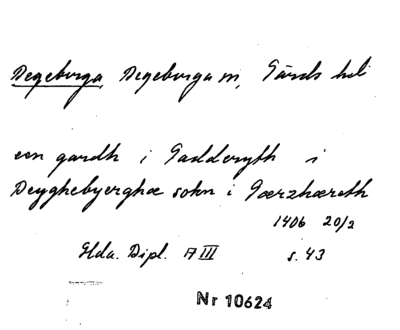 Degeberga, Degeberga sn, Gärds hd
een gardh i Gadderyth i
Deyghebyerghæ sokn i Gærzhæreth
1406 20/2
Hda. Dipl. A III s. 43
Nr 10624